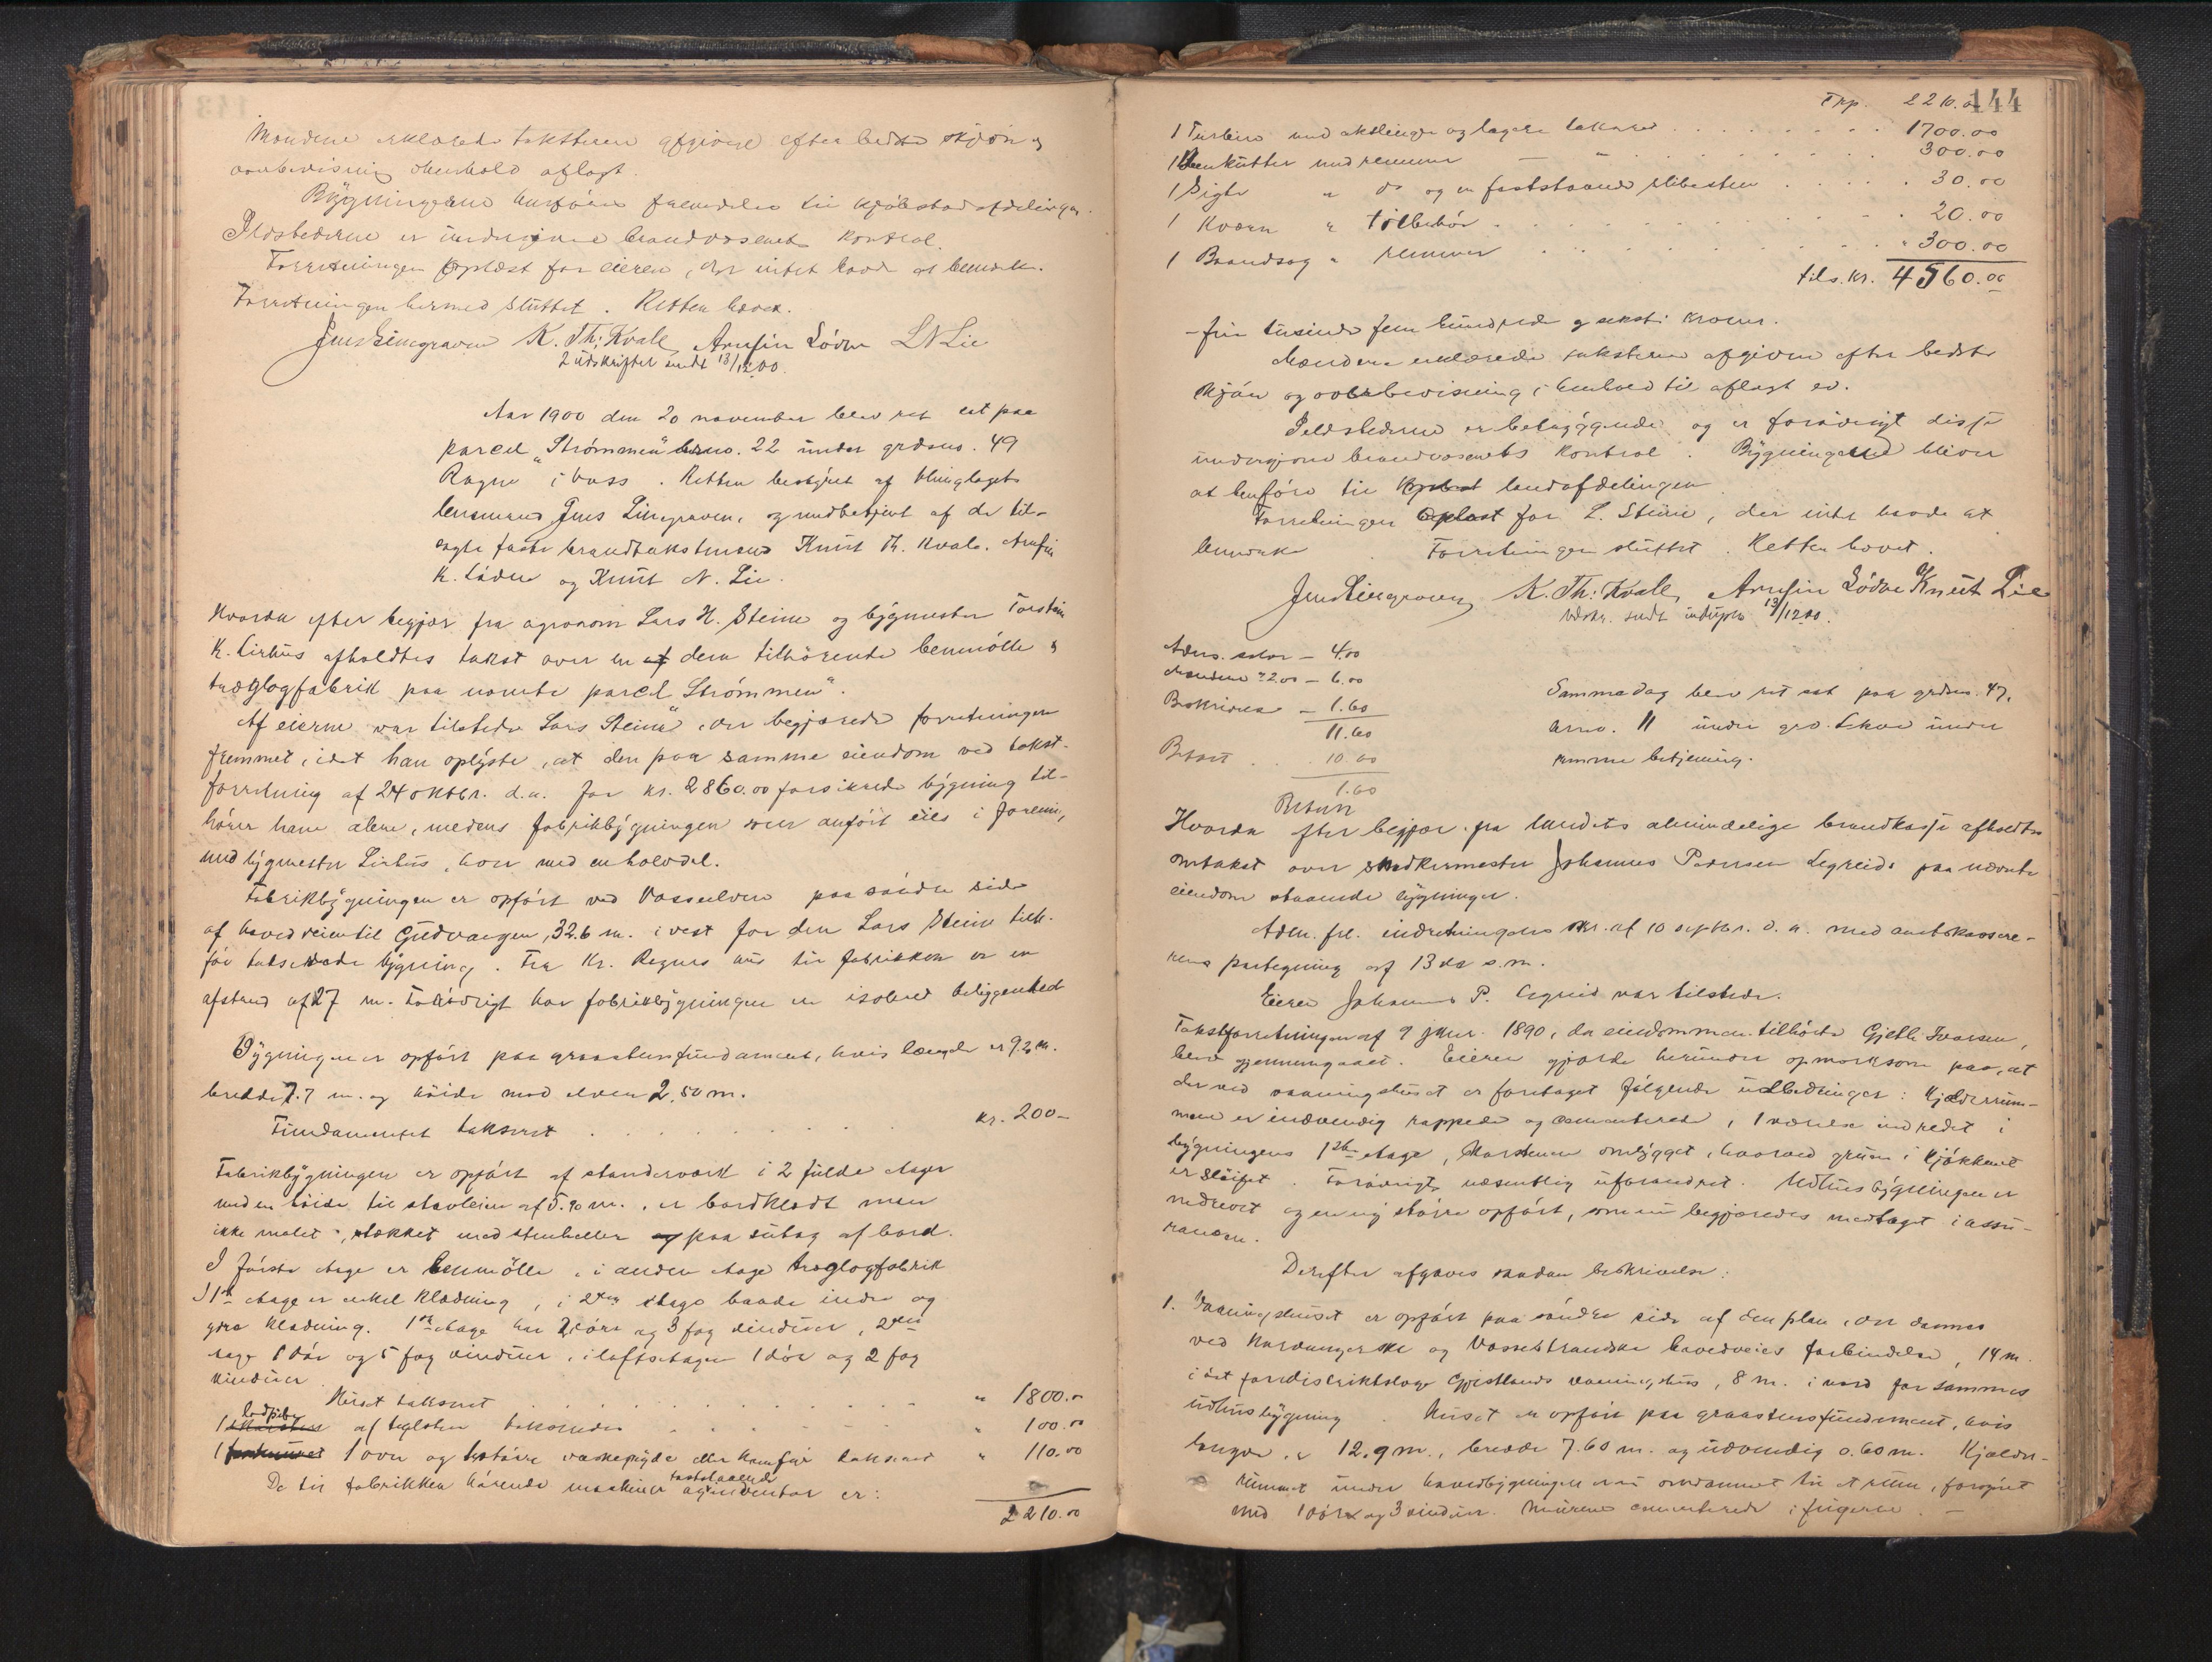 Mændene erklærede taksterne afgivne efter bedste skjøn og
overbevisning i henhold aflagt
Bygningerne henføres fremdeles til kjøbstadafdelingen.
Ildstederne er undergivne brandvæsenets kontrol.
Forretningen oplæst for eieren, der intet havde at bemærke.
Forretningen hermed sluttet. Retten hævet.
Jens Lirngraven K. Th: Kvale Arnfin Lødve LN Lie
2 udskrifter sendt 13/12 00.
Aar 1900 den 20 november blev ret sat paa
parcel „Strømmen" brno. 22 under grdsno. 49
Rogne i Voss. Retten bestyret af thinglagets
lensmand Jens Lirngraven, og medbetjent af de til-
sagte faste brandtakstmænd Knut Th. Kvale, Arnfin
K. Lødve og Knut N. Lie.
Hvorda efter begjær fra agronom Lars H. Steine og bygmester Torstein
K. Lirhus afholdtes takst over en af dem tilhørende benmølle og
træglogfabrik paa nævnte parcel Strømmen".
Af eierne var tilstede Lars Steine, der begjærede forretningen
fremmet, idet han oplyste, at den paa samme eiendom ved takst-
forretning af 24 oktbr. d.a. for kr. 2860.00 forsikrede bygning til-
hører ham alene, medens fabrikbygningen som anført eies i forening
med bygmester Lirhus, hver med en halvdel.
Fabrikbygningen er opført ved Vosseelven paa søndre side
af hovedveien til Gudvangen, 32.6 m. i vest for den Lars Steine tilh.
før takserede bygning. Fra Kr. Rognes hus til fabrikken er en
afstand af 27 m. Forøvrigt har fabrikbygningen en isoleret beliggenhed
Bygningen er opført paa graastensfundament, hvis længde er 9.2 m.
bredde 7.7 m. og høide mod elven 2.50 m.
Fundamentet takseret . . . . . . kr. 200 –
Fabrikbygningen er opført af standerværk i 2 fulde etager
med en høide til stavleien af 5.90 m., er bordklædt men
ikke malet, tækket med stenheller og paa sutag af bord.
I første etage er benmølle, i anden etage træglogfabrik
I 1ste etage er enkel klædning, i 2den etage baade indre og
ydre klædning. 1ste etage har 2 døre og 3 fag vinduer, 2den
etage 1 dør og 5 fag vinduer, i loftsetagen 1 dør og 2 fag
vinduer
Huset takseret . . . . . . " 1800.00
lodpibe
1 skorsten af teglsten takseredes . . . . " 100.00
1 1 ovn og 1 større vaskegryde eller komfur takseret " 110.00
faststaaende
De til fabrikken hørende maskiner og inventar er:
2210.00
144
Trp. 2210.00
1 Turbine med akslinger og lagere takseret . . . . 1700.00
1 Benkutter med remmer — " . . . . 300.00
1 Sigte " do og en faststaaende slibesten . . . . 30.00
1 Kværn " tilbehør . . . . 20.00
1 Baandsag " remmer . . . . " 300.00
tils. kr. 4560.00
– fire tusinde fem hundrede og seksti kroner.
Mændene erklærede taksterne afgivne efter bedste
skjøn og overbevisning i henhold til aflagt ed.
Ildstederne er betryggende og er forøvrigt disse
undergivne brandvæsenets kontrol. Bygningerne bliver
at henføre til landafdelingen
Forretningen oplæst for L. Steine, der intet havde at
bemærke. Forretningen sluttet. Retten hævet.
Jens Lirngraven K. Th: Kvale, Arnfin Lødve Knut Lie
Udskr. sendt induplo 13/12 00.
Adms. salær – 4.00
Mændene à 2.00 – 6.00
Beskrivelse – 1.60
11.60
Betalt . . 10.00
1.60
Retur
Samme dag blev ret sat paa grdsno. 47,
brno. 11 under grd. Lekve under
samme betjening.
Hvorda efter begjær fra landets almindelige brandkasse afholdtes
omtakst over snedkermester Johannes Pedersen Legreids paa nævnte
eiendom staaende bygninger.
Adm. frl. indretningens skr. af 10 septbr. d. a. med amtskasere-
rens paategning af 13de s.m.
Eieren Johannes P. Legreid var tilstede.
Takstforretningen af 9 janr. 1890, da eiendommen tilhørte Gjetle Ivarsen,
blev gjennemgaaet. Eieren gjorde herunder opmærksom paa, at
der ved vaaningshuset er foretaget følgende udbedringer: Kjælderrum-
mene er indvendig rappede og cementerede, 1 værelse indredet i
bygningens 1ste etage, skorstenen ombygget, hvorved gruen i kjøkkenet
er sløifet. Forøvrigt væsentlig uforandret. Udhusbygningen er
nedrevet og en ny større opført, som nu begjæredes medtaget i assu-
rancen.
Derefter afgaves saadan beskrivelse:
1. Vaaningshuset er opført paa søndre side af den plan, der dannes
ved Hardangerske og Vossestrandske hovedveies forbindelse, 14 m.
i øst for distriktslæge Gjestlands vaaningshus, 8 m. i nord for sammes
udhusbygning. Huset er opført paa graastensfundament, hvis
længde er 12.9 m., bredde 7.60 m. og udvendig 0.60 m. Kjælder-
rummet under hovedbygningen er nu omdannet til et rum, forsynet
med 1 dør og 3 vinduer. Murene cementerede i fugerne. –